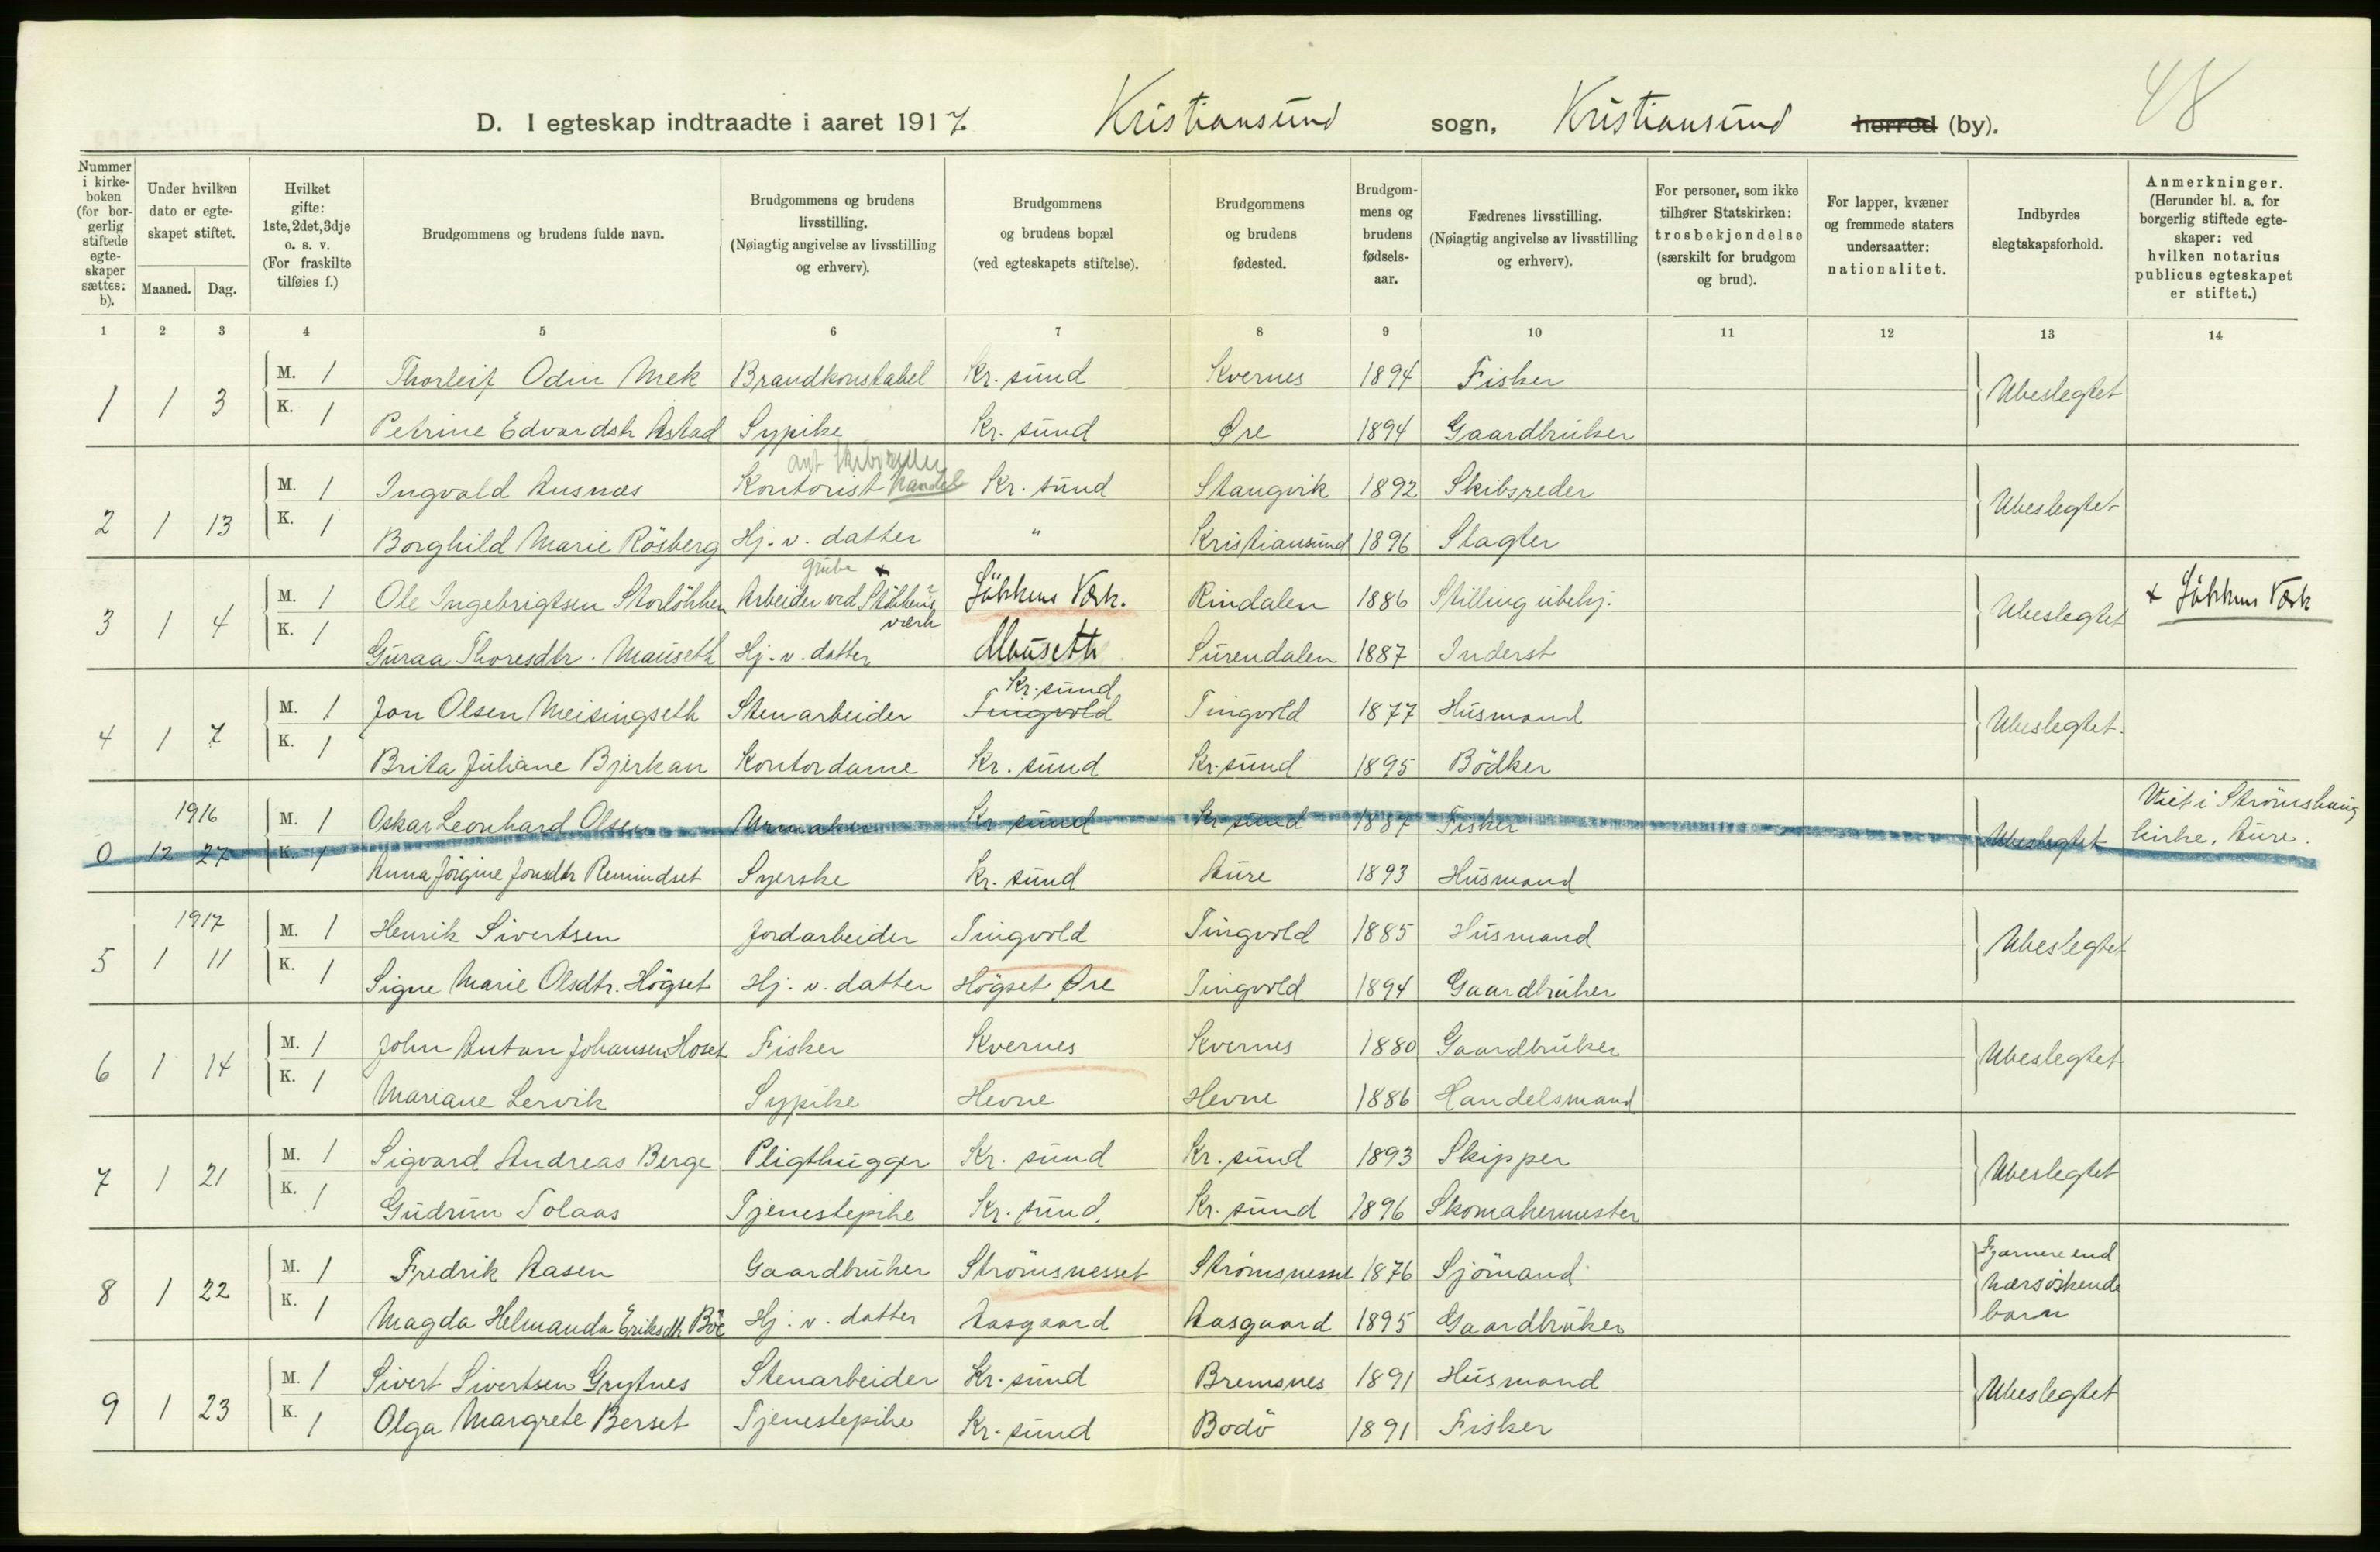 48
D. I egteskap indtraadte i aaret 1917. Kristiansund sogn, Kristiansund herred (by).
Nummer i kirke-boken (for bor-gerlig stiftede egte-skaper sættes: b).
Under hvilken dato er egte-skapet stiftet.
Maaned. Dag.
Hvilket gifte: 1ste, 2det, 3dje o. s. v. (For fraskilte tilføies f.)
Brudgommens og brudens fulde navn.
Brudgommens og brudens livsstilling. (Nøiagtig angivelse av livsstilling og erhverv).
Brudgommens og brudens bopæl (ved egteskapets stiftelse).
Brudgommens og brudens fødested.
Brudgom-mens og brudens fødsels-aar.
Fædrenes livsstilling. (Nøiagtig angivelse av livsstilling og erhverv).
For personer, som ikke tilhører Statskirken: trosbekjendelse (særskilt for brudgom og brud).
For lapper, kvæner og fremmede staters undersaatter: nationalitet.
Indbyrdes slegtskapsforhold.
Anmerkninger. (Herunder bl. a. for borgerlig stiftede egte-skaper: ved hvilken notarius publicus egteskapet er stiftet.)
1 2 3 4 5 6 7 8 9 10 11 12 13 14
M. 1 Thorleif Odin Mek Brandkonstabel Kr. sund Kvernes 1894 Fisker
1 1 3 Ubeslegtet
K. 1 Petrine Edvardsdtr Astad Sypike Kr. sund Øre 1894 Gaardbruker
M. 1 Ingvald Ausnæs Kontorist handel Kr. sund Stangvik 1892 Skibsreder
2 1 13 Ubeslegtet
K. 1 Borghild Marie Rösberg Hj. v. datter " Kristiansund 1896 Slagter
grube +
M. 1 Ole Ingebrigtsen Storlökken Arbeider ved Stökkens værk Lökkens Værk. Rindalen 1886 Stilling ubekj. + Lökkens Værk
3 1 4 Ubeslegtet
K. 1 Guraa Thoresdtr. Mauseth Hj. v. datter Mauseth Surendalen 1887 Inderst
Kr. sund
M. 1 Jon Olsen Meisingseth Stenarbeider Tingvold Tingvold 1877 Husmand
4 1 7 Ubeslegtet.
K. 1 Brita Juliane Bjerkan Kontordame Kr. sund Kr. sund 1895 Bödker
1916 M. 1 Oskar Leonhard Olsen Urmaker Kr sund Kr sund 1887 Fisker Viet i Strömshaug
0 12 27 K. 1 Ubeslegtet kirke, Aure.
Anna Jörgine Jonsdtr Remindset Syerske Kr. sund Aure 1893 Husmand
1917 M. 1 Henrik Sivertsen Jordarbeider Tingvold Tingvold 1885 Husmand
5 1 11 Ubeslegtet
K. 1 Signe Marie Olsdtr. Högset Hj. v. datter Högset Øre Tingvold 1894 Gaardbruker
M. 1 John Anton Johansen Hoset Fisker Kvernes Kvernes 1880 Gaardbruker
6 1 14 Ubeslegtet
K. 1 Mariane Lervik Sypike Hevne Hevne 1886 Handelsmand
M. 1 Sigvard Andreas Berge Pligthugger Kr. sund Kr. sund 1893 Skipper
7 1 21 Ubeslegtet
K. 1 Gudrun Solaas Tjenestepike Kr. sund. Kr. sund 1896 Skomakermester
M. 1 Fredrik Aasen Gaardbruker Strömsnesset Strömsnesset 1876 Sjömand Fjærnere end
8 1 22 næsöskende
K. 1 Magda Helmanda Eriksdtr Böe Hj. v. datter Aasgaard Aasgaard 1895 Gaardbruker barn
M. 1 Sivert Sivertsen Grytnes Stenarbeider Kr. sund Bremsnes 1891 Husmand
9 1 23 Ubeslegtet
K. 1 Olga Margrete Berset Tjenestepike Kr. sund Bodö 1891 Fisker